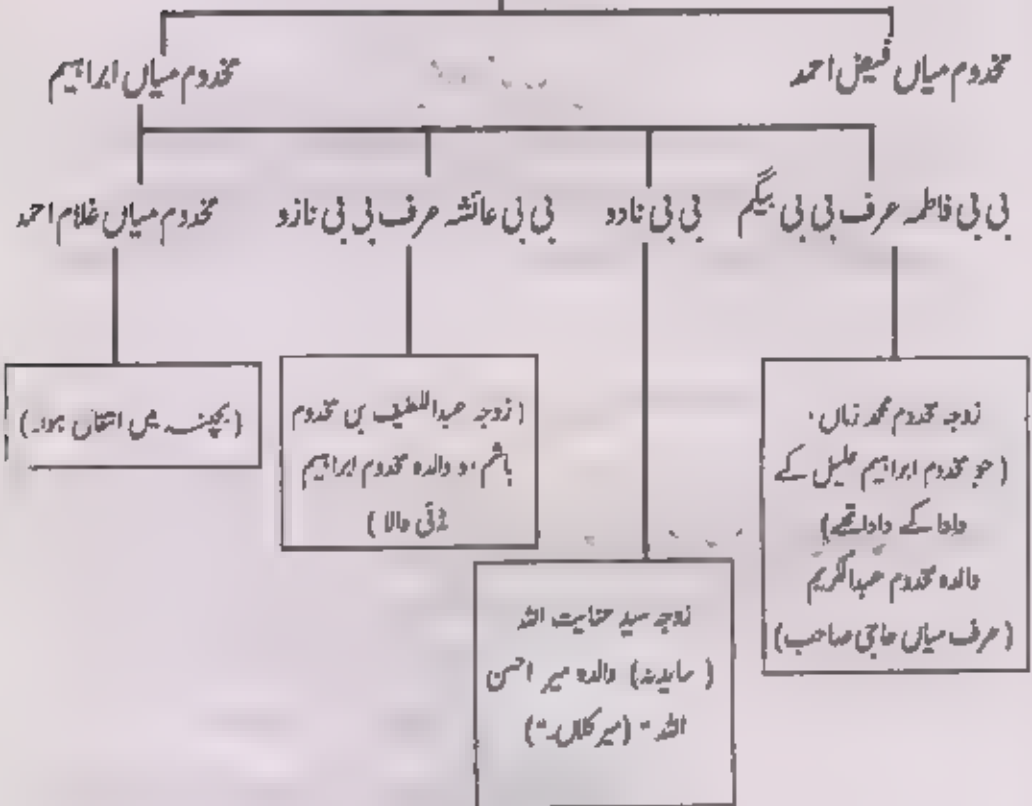 مخدوم میاں فیض احمد
مخدوم میاں ابراہیم
بی بی فاطمہ عرف بی بی بیگم
بی بی نادو
بی بی عائشہ عرف بی بی نازو
مخدوم میاں غلام احمد
زوجہ مخدوم محمد زماں
(جو مخدوم ابراہیم خلیل کے
دادا کے دادا تھے)
والدہ مخدوم عبدالکریم
(عرف میاں حاجی صاحب)
زوجہ سید عنایت اللہ
والدہ میر احسن
اللہ (میر کلاں)
(زوجہ عبداللطیف بن مخدوم
ہاشم، و والدہ مخدوم ابراہیم
والا)
(بچپنے میں انتقال ہوا۔)